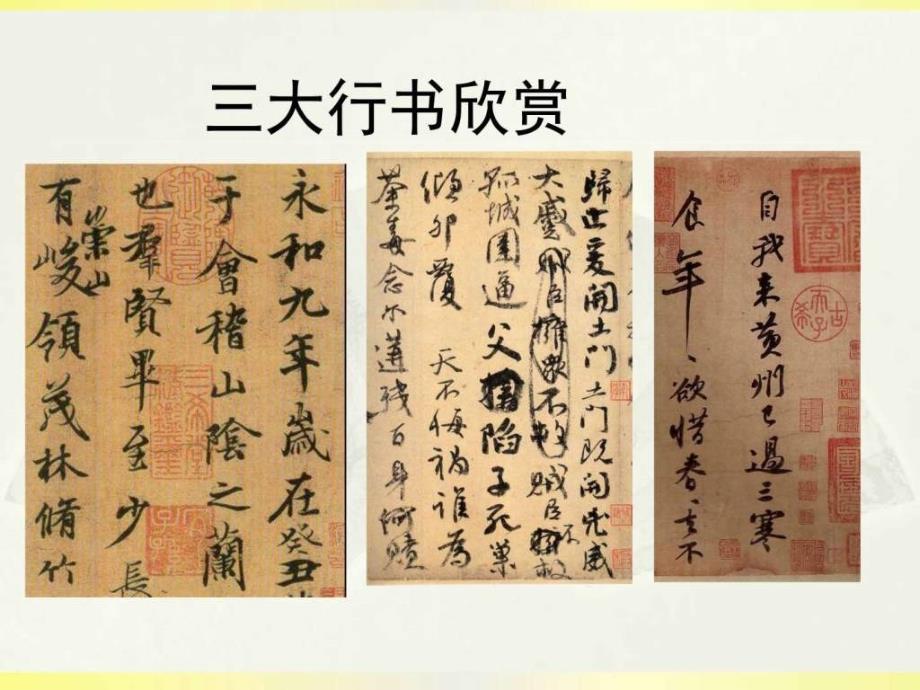 三大行书欣赏
永和九年歲在癸丑
于會稽山陰之蘭
也羣賢畢至少長
有崇山峻領茂林脩竹
歸止爰開土門土門既開兇威
大蹙賊臣擁衆不救賊臣不救
孤城圍逼父陷子死巢
傾卵覆天不悔禍誰爲
荼毒念尔遘殘百身何贖
自我来黄州已過三寒
食年、欲惜春、去不
古希天子